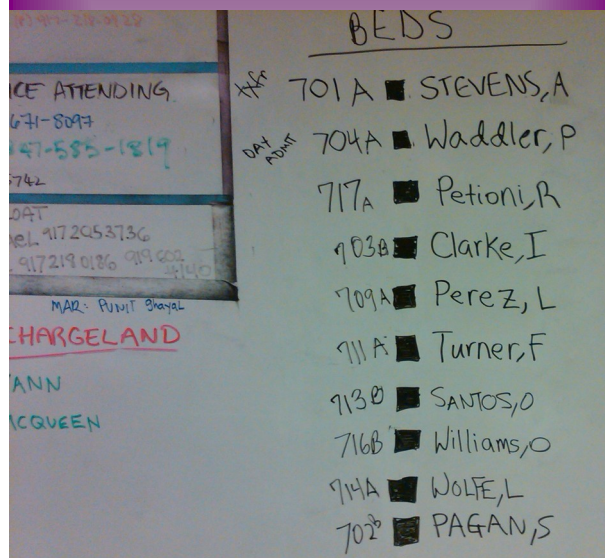 BEDS
ICE ATTENDING
671-8097
47-585-1819
5742
OAT
9172053736
9172190186
MAR: PUNIT
CHARGELAND
ANN
MCQUEEN
Xfr 701A STEVENS, A
DAY ADMIT 704A Waddler, P
717A Petioni, R
703B Clarke, I
709A Perez, L
711A Turner, F
713B SANTOS, O
716B Williams, O
714A WOLFE, L
702b PAGAN, S